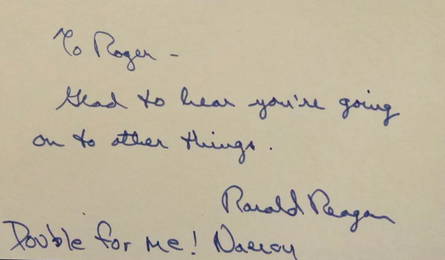 To Roger -
Glad to hear you're going
on to other things.
Ronald Reagan
Double for me! Nancy